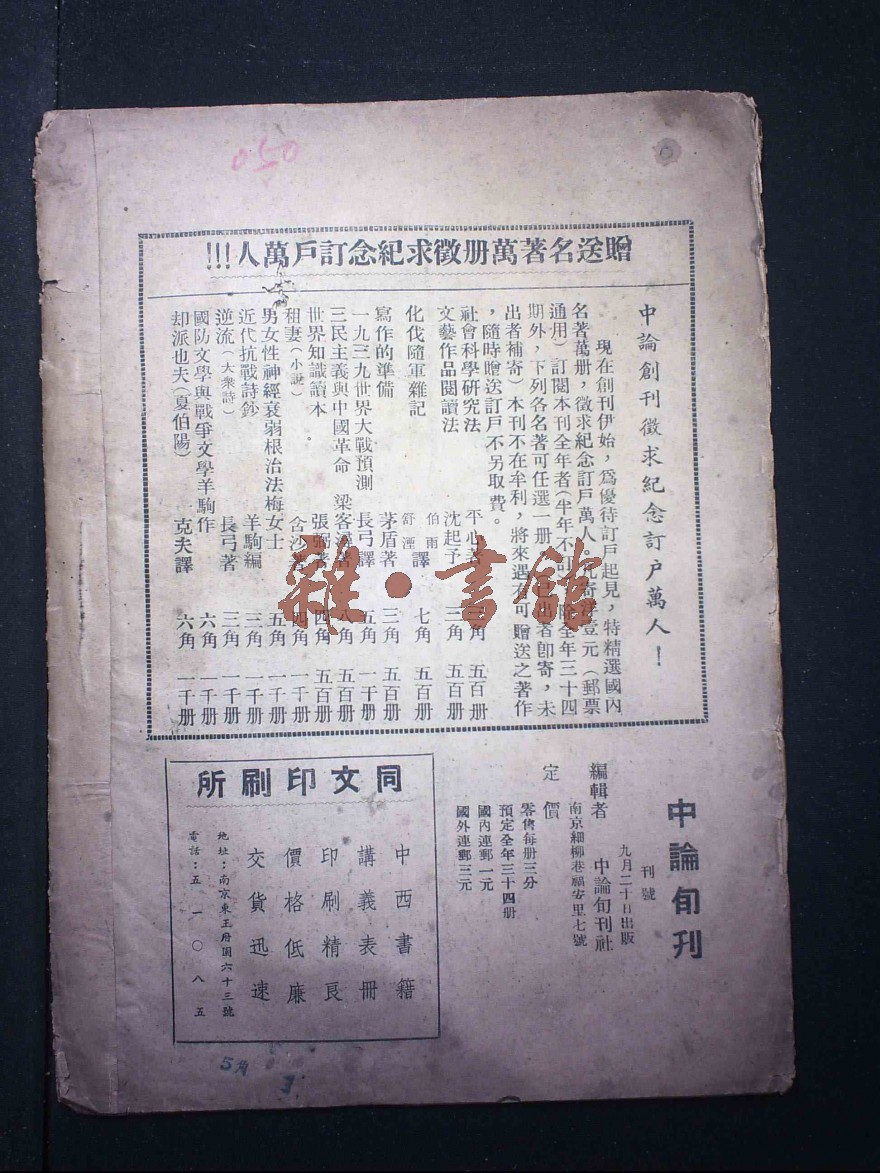 050
贈送名著萬册徵求紀念訂戶萬人!!!
中論創刊徵求紀念訂户萬人！
現在創刊伊始，爲優待訂戶起見，特精選國內
名著萬册，徵求紀念訂戶萬人，凡寄洋壹元（郵票
通用）訂閱本刊全年者（半年不可）除全年三十四
期外，下列各名著可任選一册（已出者卽寄，未
出者補寄）本刊不在牟利，將來遇有可贈送之著作
，隨時贈送訂戶不另取費。
社會科學研究法 平心著 三角 五百册
文藝作品閱讀法 沈起予 三角 五百册
化伐隨軍雜記 伯雨 舒湮 譯 七角 五百册
寫作的準備 茅盾著 三角 五百册
一九三九世界大戰預測 長弓譯 五角 一千册
三民主義與中國革命 梁客潯著 八角 五百册
世界知識讀本 張弼著 四角 五百册
租妻（小說） 含沙著 四角 一千册
男女性神經衰弱根治法 梅女士 五角 一千册
近代抗戰詩鈔 羊駒編 三角 一千册
逆流（大衆詩） 長弓著 三角 一千册
國防文學與戰爭文學 羊駒作 六角 一千册
却派也夫（夏伯陽） 克夫譯 六角 一千册
雜·書館
中論旬刊
刊號
九月二十日出版
編輯者 中論旬刊社
南京細柳巷福安里七號
定價
零售每册三分
預定全年三十四册
國內連郵一元
國外連郵三元
同文印刷所
中西書籍
講義表冊
印刷精良
價格低廉
交貨迅速
地址：南京東王府園六十三號
電話：五一〇八五
5角